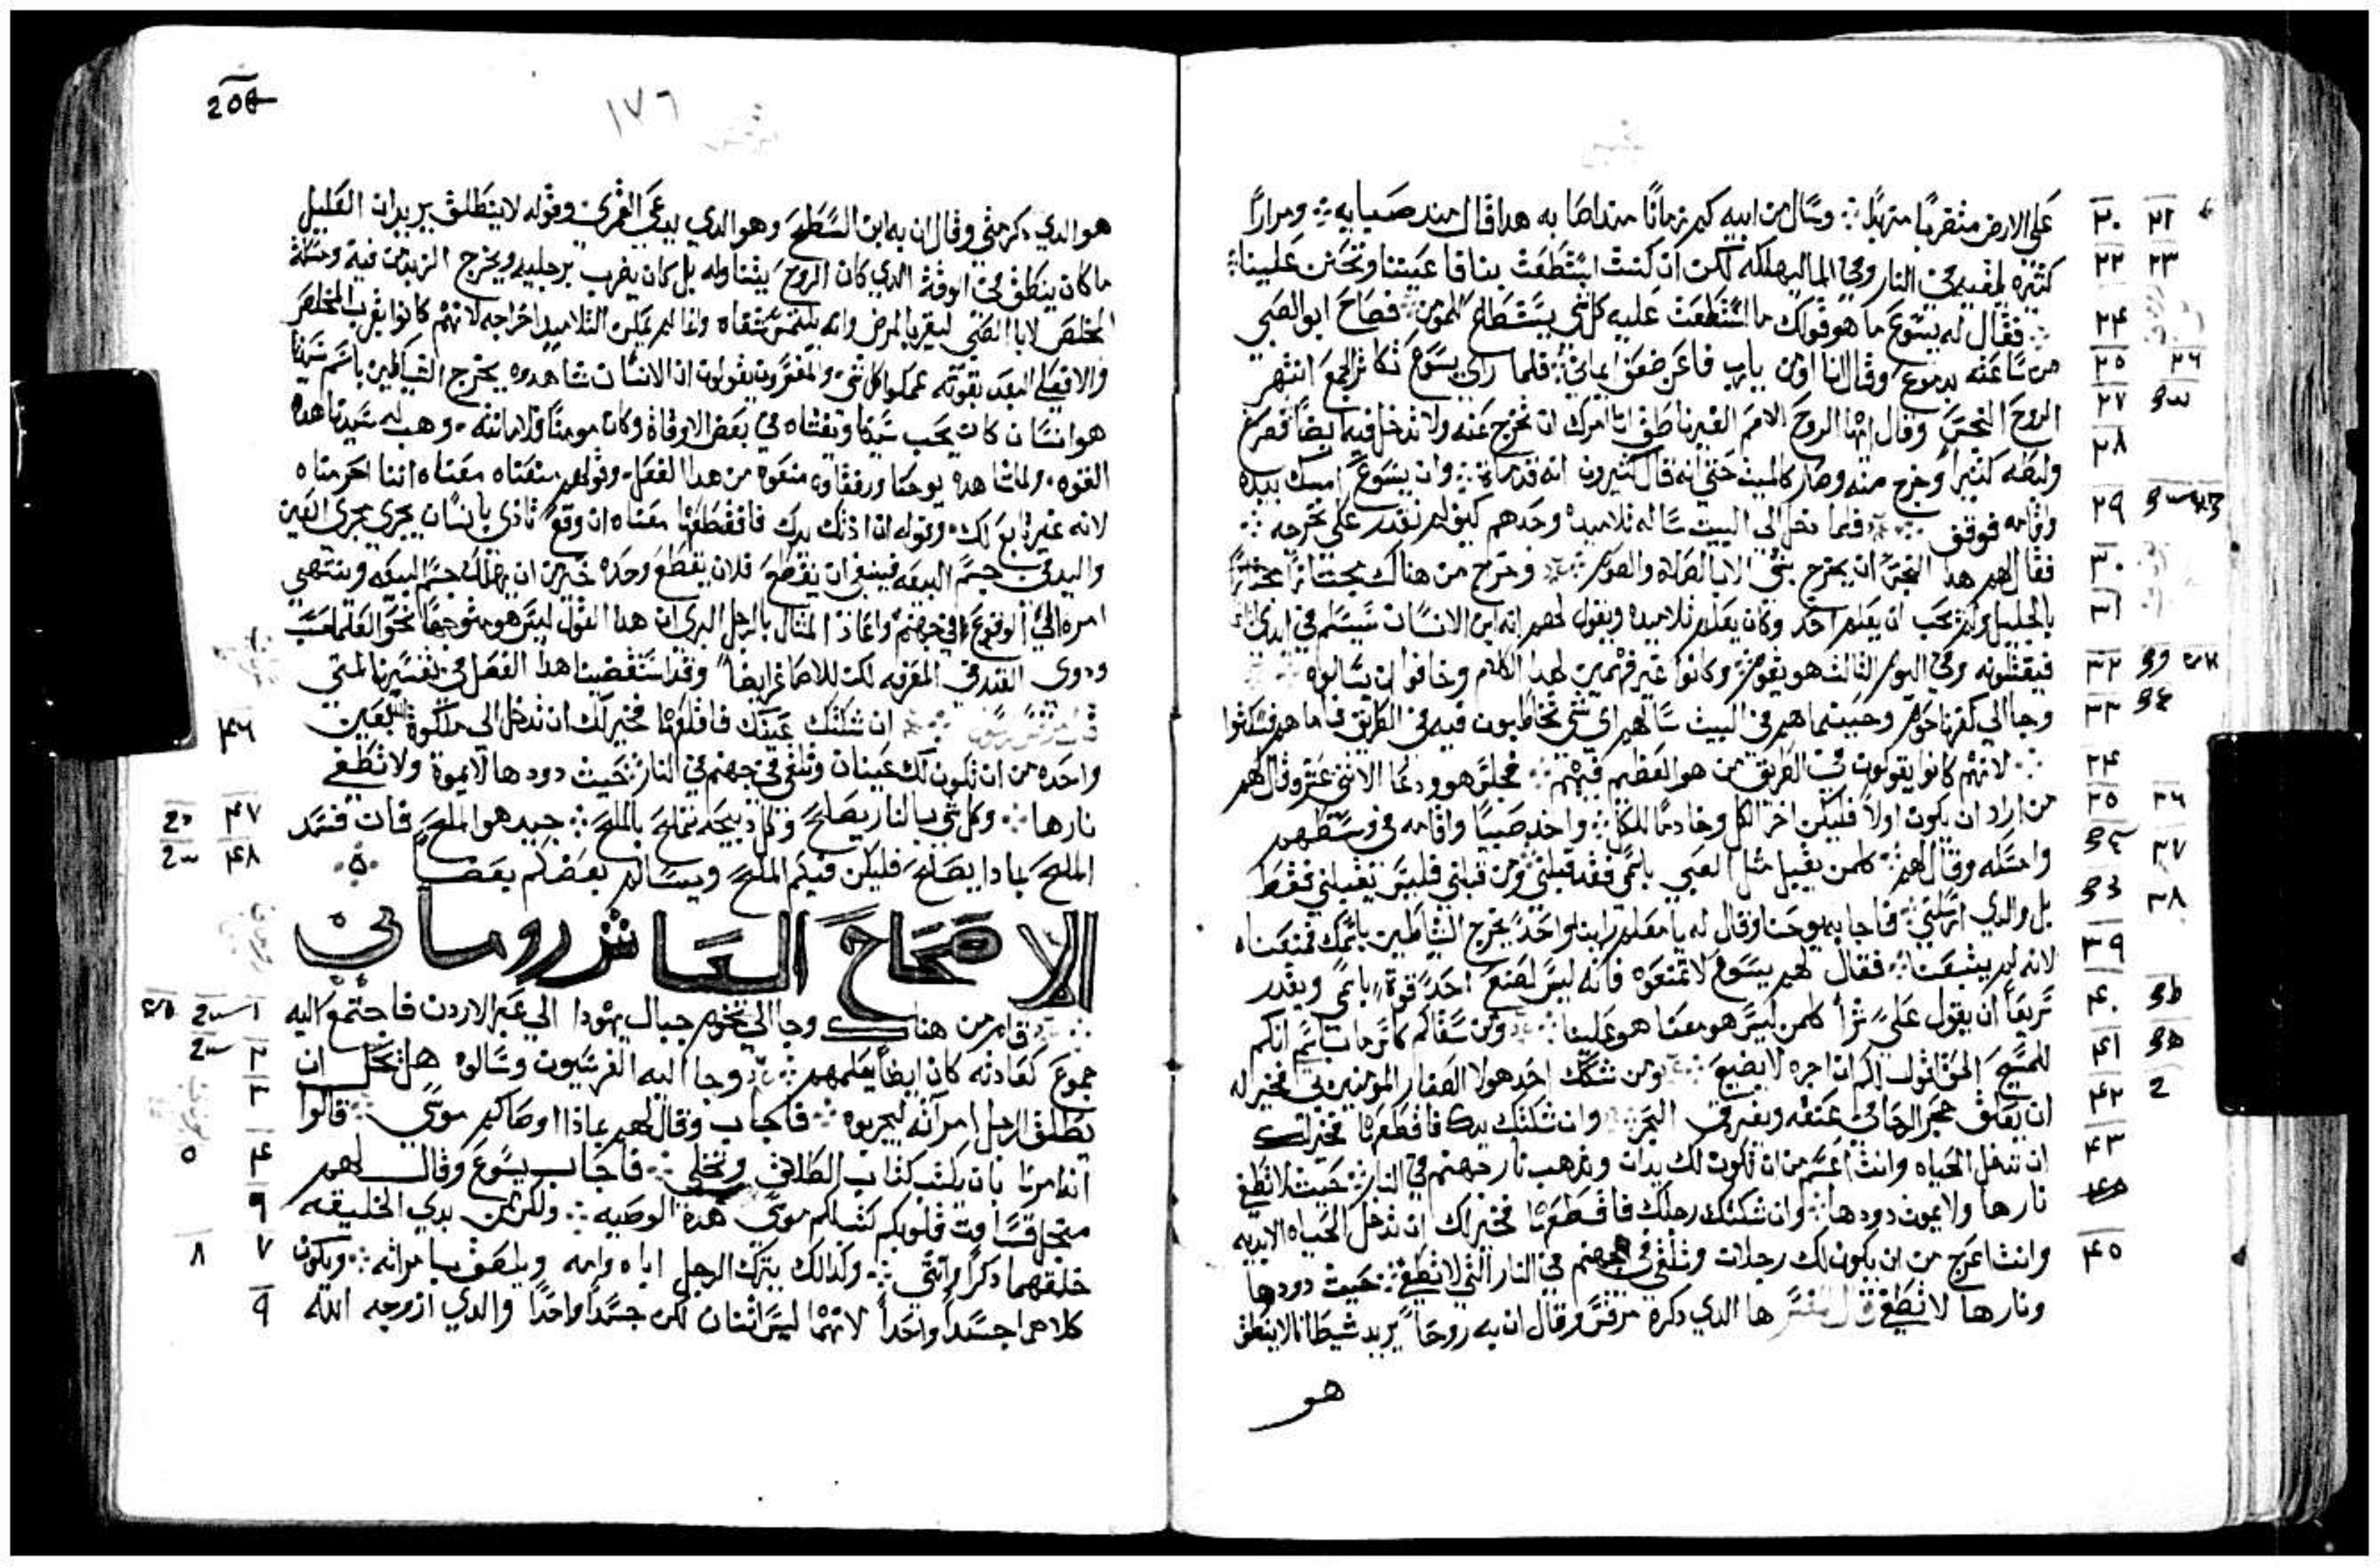 على الارض متقربا متهبل وسال من ابيه كم زمانا منذ اصابه هدا قال منذ صبايه ومرارا
كثيره لقيه في النار وفي الما ليهلكه لكن ان كنت استطعت بنا فاعيننا وتحنن علينا
فقال له يسوع ما هو قولك ما استطعت عليه كل شي يستطاع للمومن فصاح ابو الصبي
من ساعته بدموع وقال انا اومن يارب فاعن ضعف ايماني فلما راي يسوع تكاثر الجمع انتهر
الروح النجس وقال ايها الروح الاصم الغير ناطق انا امرك ان تخرج عنه ولا تدخل فيه ايضا فصرخ
ولبطه كثيرا وخرج منه وصار كالميت حتي انه قال كثيرون انه قد مات وان يسوع امسك بيده
واقامه فوقف فلما دخل الي البيت ساله تلاميده وحدهم كيف لم نقدر علي نخرجه
فقال لهم هدا الجنس ان يخرج بشي الا بالصلاة والصوم وخرج من هناك مجتازا
بالجليل ولم يحب ان يعلم احد وكان يعلم تلاميده ويقول لهم انه ابن الانسان سيسلم في ايدي
فيقتلونه وفي اليوم الثالث هو يقوم وكانوا غير فهمين لهدا الكلام وخافوا ان يسالوه
وجا الي كفرناحوم وحينما هم في البيت سالهم اي شي تخاطبون فيه في الطريق فاما هم فسكتوا
لانهم كانوا يقولون في الطريق من هو العظيم فيهم فجلس هو ودعا الاثني عشر وقال لهم
من اراد ان يكون اولا فليكن اخر الكل وخادما للكل واخد صبيا واقامه في وسطهم
وامسكه وقال لهم كلمن يقبل مثل الصبي باسمي فقد قبلني ومن قبلني فليس يقبلني فقط
بل والدي ارسلني فاجابه يوحنا وقال له يا معلم راينا واحدا يخرج الشياطين باسمك فمنعناه
لانه لم يتبعنا فقال لهم يسوع لا تمنعوه فانه ليس يصنع احد قوة باسمي ويقدر
سريعا ان يقول علي شرا كلمن ليس هو معنا هو علينا ومن سقاكم كاس ما باسم انكم
للمسيح الحق اقول لكم ان اجره لا يضيع ومن شكك احد هولا الصغار المومنين بي فخير له
ان يعلق حجر الرحا في عنقه ويغرق في البحر وان شككتك يدك فاقطعها فخير لك
ان تدخل الحياه وانت اعسم من ان تكون لك يدان وتدهب نار جهنم في النار حيث لا تطفي
نارها ولا يموت دودها وان شككتك رجلك فاقطعها فخير لك ان تدخل الحياه الابديه
وانت اعرج من ان يكون لك رجلان وتلقي في جهنم في النار التي لا تطفي حيث دودها
ونارها لا تطفي قال المفسر ها الدي دكره مرقس وقال ان به روحا يريد شيطانا لا ينطق
هو
١٧٦
هو الدي دكر متي وقال ان به ابن السطح وهو الدي يدعي القمري وقوله لا ينطلق يريد ان القليل
ما كان ينطق في الوقت الدي كان الروح يتناوله بل كان يضرب برجليه ويخرج الزبد من فيه ومساله
المخلص لابا الصبي ليقر بالمرض وانه يلتمس شفاه وانما لم يمكن التلاميد اخراجه لانهم كانوا بقرب المخلص
هو انسان كان يحب سيدنا ويغشاه في بعض الاوقات وكان مومنا وهب له سيدنا هده
القوه ولما شاهده يوحنا ورفقاوه منعوه من هدا الفعل وقولهم منعناه معناه اننا احرمناه
لانه غير تابع لك وقوله ان اذتك يدك فاقطعها معناه ان وقع تادي بانسان يجري مجري العين
واليد في جسم البيعه فينبغي ان يقطع فلان يقطع وحده خير من ان يهلك جسم البيعه وينتهي
امره الي الوقوع في جهنم وانما المثال بالرجل اليدين هدا القول ليس هو متوجها نحو العلما
ودوي القدر في المعرفه لكن للاصاغر ايضا وقد استقضينا هدا الفصل في تفسيرنا لمتي
ان شككتك عينك فاقلعها فخير لك ان تدخل الي ملكوة الله بعين
واحده من ان تكون لك عينان وتلقي في جهنم في النار حيث دودها لا يموت ولا تطفي
نارها وكل شي بالنار يصلح وكل دبيحه تملح بالملح جيد هو الملح فان فسد
الملح بمادا يصلح فليكن فيكم الملح ويسالم بعضكم بعضا
الاصحاح العاشر روماني
قام من هناك وجا الي تخوم جبال يهودا الي عبر الاردن فاجتمع اليه
جموع كعادته كان ايضا يعلمهم وجا اليه الفرسيون وسالوه هل يحل ان
يطلق الرجل امرآته ليجربوه فاجاب وقال لهم بماذا اوصاكم موسي قالوا
انه امرنا بان يكتب كتاب الطلاق وتخلي فاجاب يسوع وقال لهم
من اجل قساوت قلوبكم كتب لكم موسي هده الوصيه ولكن من بدي الخليقه
خلقهما دكرا وانثي وكذالك يترك الرجل اباه وامه ويلصق بامراته ويكون
كلاهما جسدا واحدا لانهما ليس اثنان لكن جسدا واحدا والدي ازوجه الله